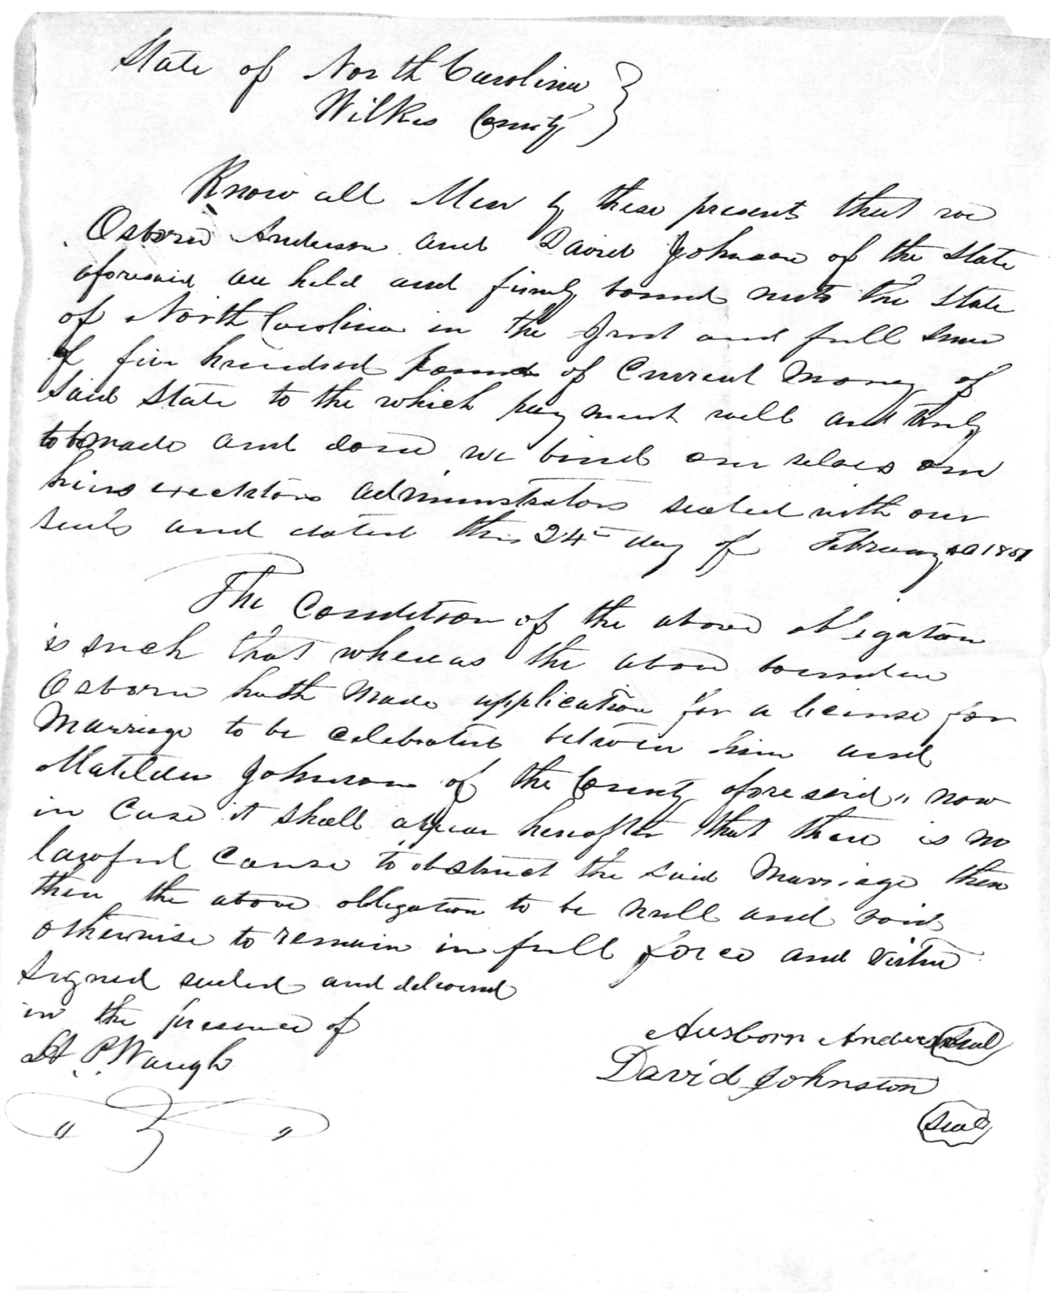 State of North Carolina }
Wilkes County }
Know all Men by these present that we
Osborn Anderson and David Johnson of the State
aforesaid are held and firmly bound unto the State
of North Carolina in the Just and full sum
of five hundred pounds of Current Money of
said State to the which payment well and truly
to be made and done we bind our selves our
heirs executors administrators sealed with our
seals and dated this 24th day of February AD 1851
The Condition of the above obligation
is such that whereas the above bounden
Osborn hath made application for a license for
Marriage to be celebrated between him and
Matilda Johnson of the County aforesaid " now
in Case it shall appear hereafter that there is no
lawful cause to obstruct the said Marriage then
then the above obligation to be null and void
otherwise to remain in full force and virtue
Signed sealed and delivered
in the presence of
P. Waugh
Ausborn Anderson Seal
David Johnston
Seal